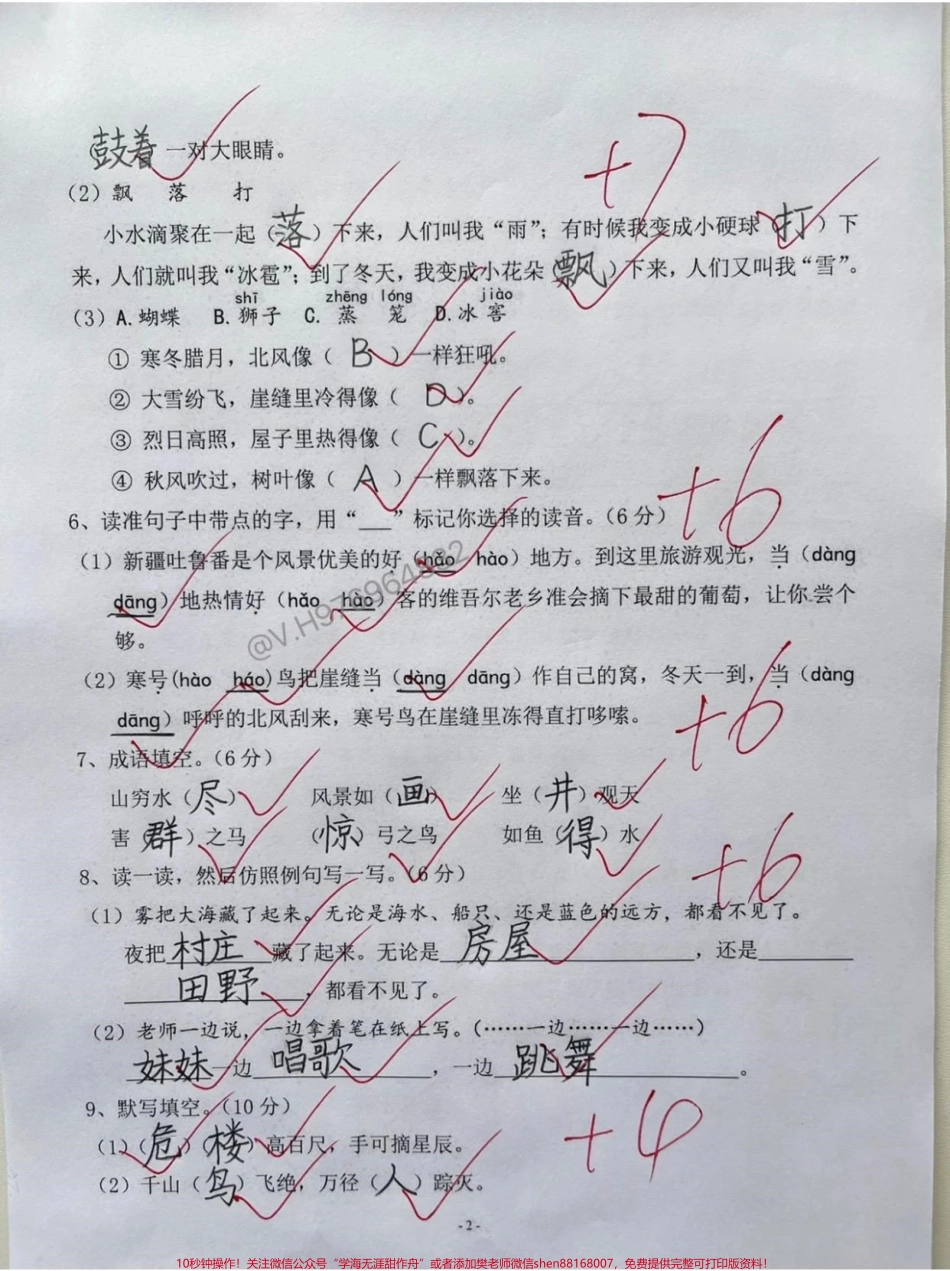 （鼓着 一对大眼睛。
+7
（2）飘 落 打
小水滴聚在一起（落）下来，人们叫我“雨”；有时候我变成小硬球（打）下
来，人们就叫我“冰雹”；到了冬天，我变成小花朵（飘）下来，人们又叫我“雪”。
shī zhēng lóng jiào
（3）A.蝴蝶 B.狮子 C.蒸笼 D.冰窖
① 寒冬腊月，北风像（ B ）一样狂吼。
② 大雪纷飞，崖缝里冷得像（ D ）。
③ 烈日高照，屋子里热得像（ C ）。
④ 秋风吹过，树叶像（ A ）一样飘落下来。
6、读准句子中带点的字，用“___”标记你选择的读音。（6分） +6
（1）新疆吐鲁番是个风景优美的好（hǎo hào）地方。到这里旅游观光，当（dàng
dāng）地热情好（hǎo hào）客的维吾尔老乡准会摘下最甜的葡萄，让你尝个
够。
@V.H976964882
（2）寒号(hào háo)鸟把崖缝当（dàng dāng）作自己的窝，冬天一到，当（dàng
dāng）呼呼的北风刮来，寒号鸟在崖缝里冻得直打哆嗦。
7、成语填空。（6分） +6
山穷水（尽） 风景如（画） 坐（井）观天
害（群）之马 （惊）弓之鸟 如鱼（得）水
8、读一读，然后仿照例句写一写。（6分） +6
（1）雾把大海藏了起来。无论是海水、船只、还是蓝色的远方，都看不见了。
夜把 村庄 藏了起来。无论是 房屋 ，还是
田野 ，都看不见了。
（2）老师一边说，一边拿着笔在纸上写。（……一边……一边……）
妹妹一边 唱歌 ，一边 跳舞 。
9、默写填空。（10分） +4
（1）（危）（楼）高百尺，手可摘星辰。
（2）千山（鸟）飞绝，万径（人）踪灭。
- 2 -
10秒钟操作！关注微信公众号“学海无涯甜作舟”或者添加樊老师微信shen88168007，免费提供完整可打印版资料！